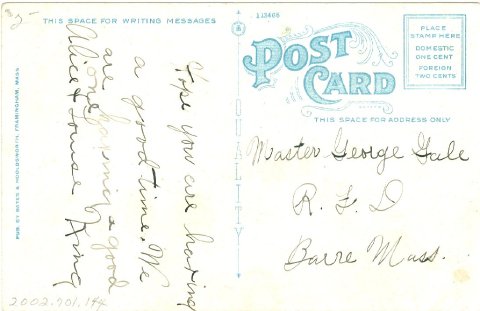 THIS SPACE FOR WRITING MESSAGES
113466
POST
CARD
PLACE
STAMP HERE
DOMESTIC
ONE CENT
FOREIGN
TWO CENTS
THIS SPACE FOR ADDRESS ONLY
QUALITY
Master George Gale
R. F. D
Barre Mass.
Hope you are having
a good time. We
are having a good
one
Alice & Louise King
PUB. BY BATES & HOLDSWORTH, FRAMINGHAM, MASS.
2002.701.144